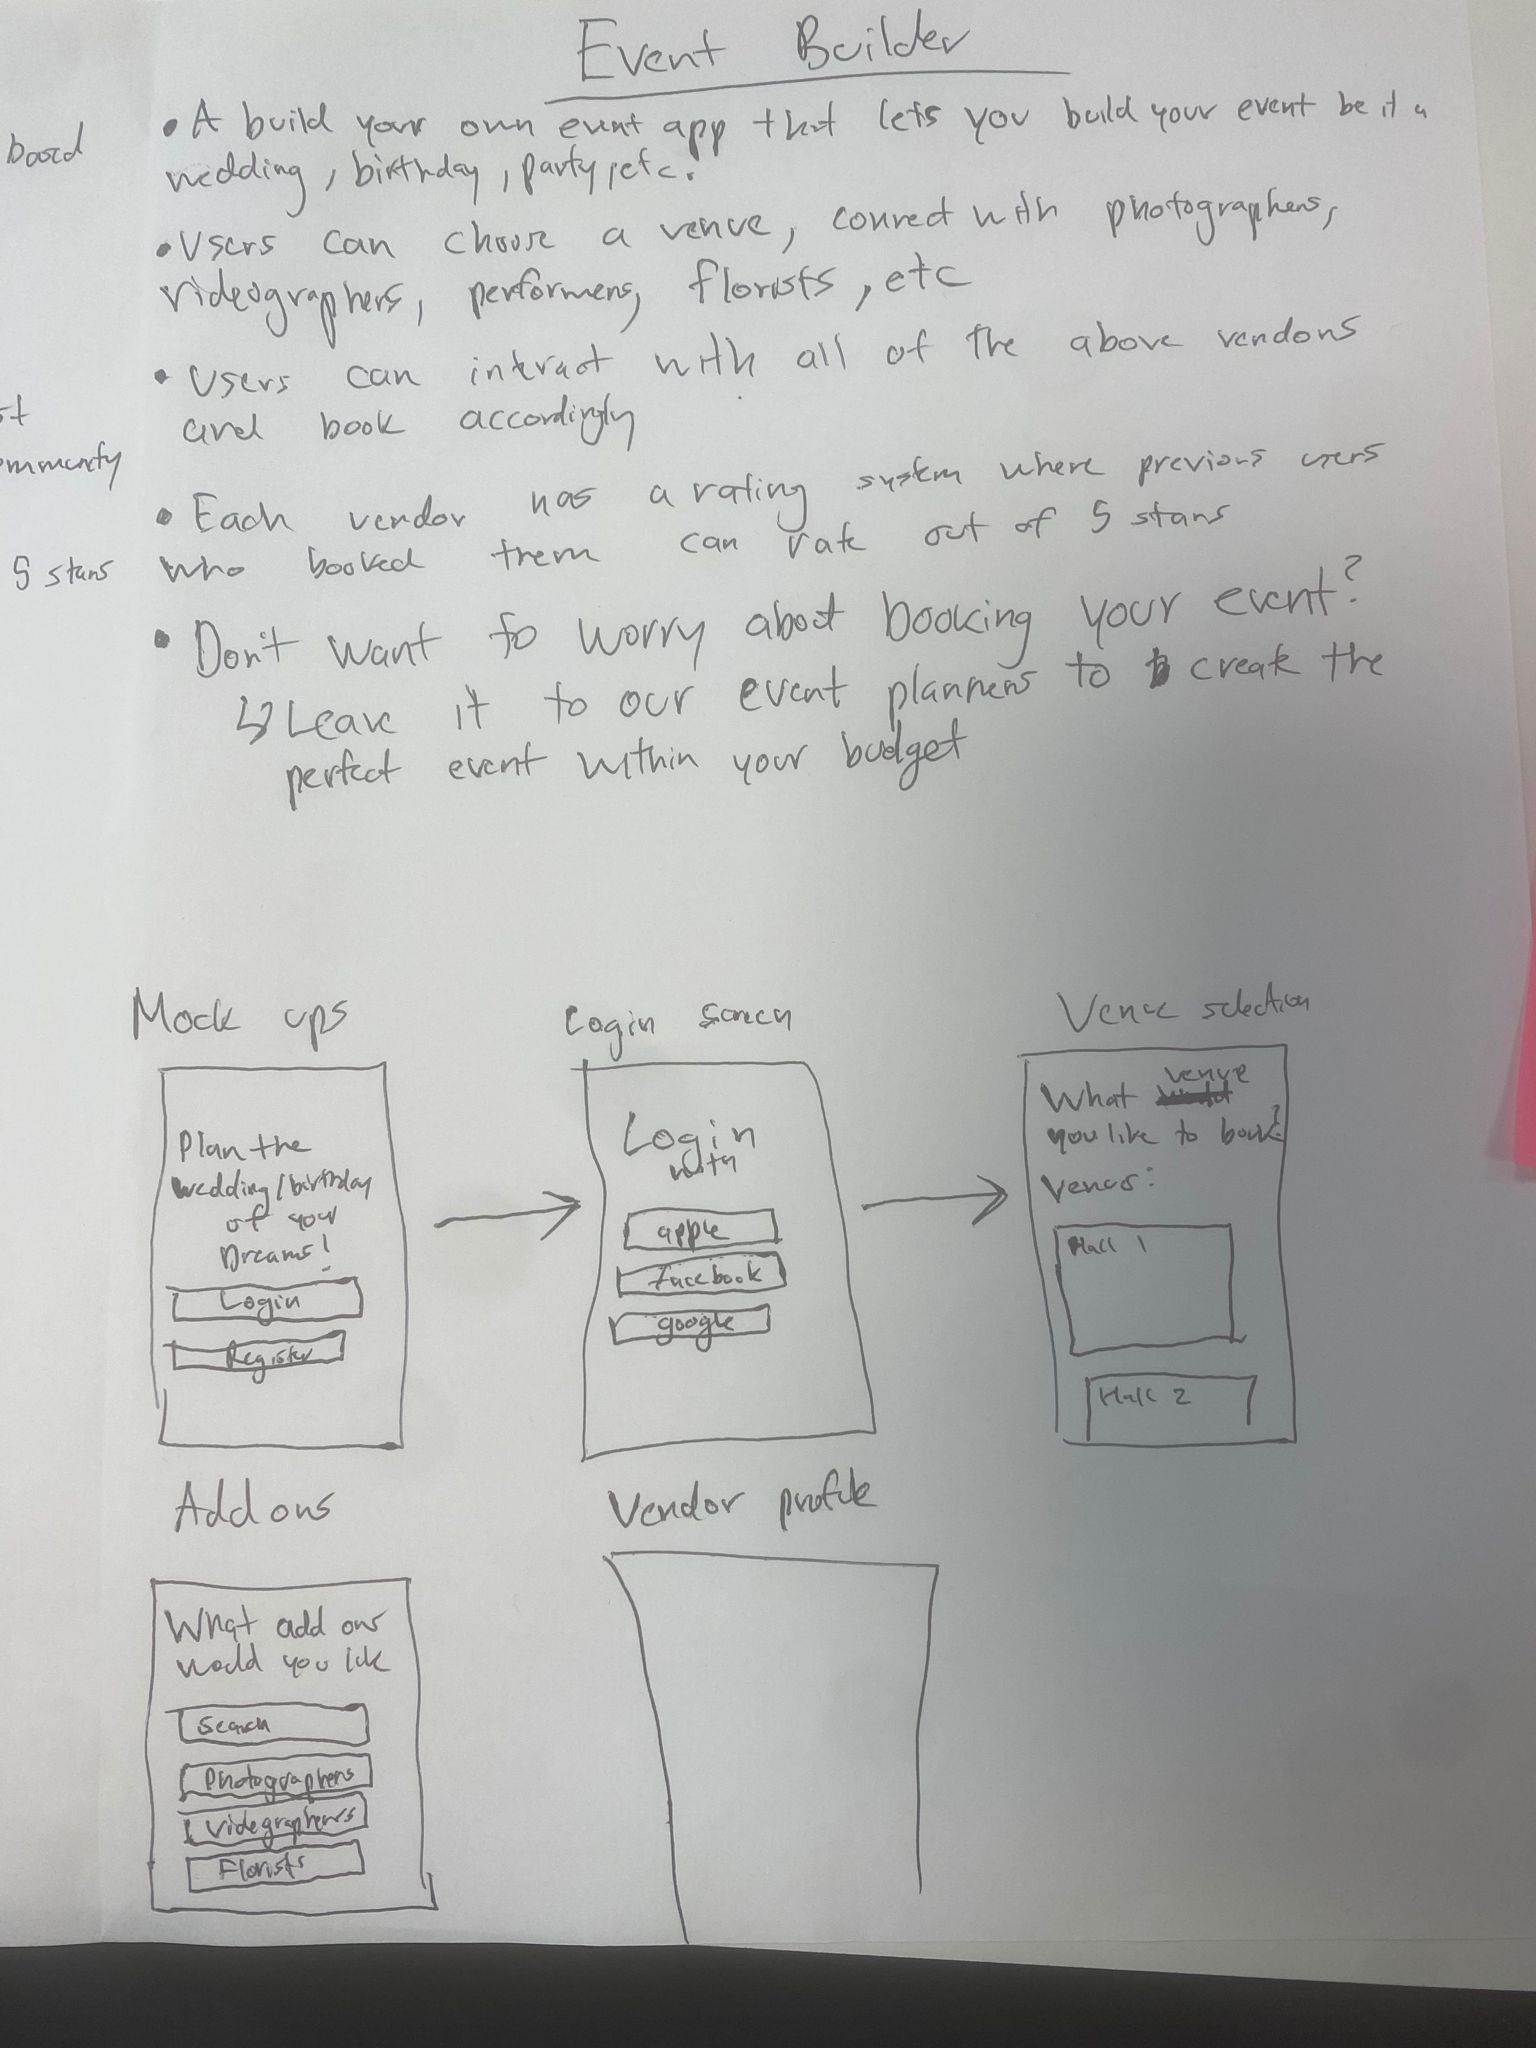 Event Builder
• A build your own event app that lets you build your event be it a
board
wedding, birthday, party, etc.
• Users can choose a venue, connect with photographers,
videographers, performers, florists, etc
• Users can interact with all of the above vendors
and book accordingly
• Each vendor has a rating system where previous users
5 stars
who booked them can rate out of 5 stars
• Don't want to worry about booking your event?
↳ Leave it to our event planners to create the
perfect event within your budget
Mock ups
Plan the
wedding/birthday
of your
Dreams!
Login
Register
Login screen
Login
with
apple
facebook
google
Venue selection
What venue
you like to book?
Venues:
Hall 1
Hall 2
Add ons
What add ons
would you like
Search
Photographers
Videgraphers
Florists
Vendor profile